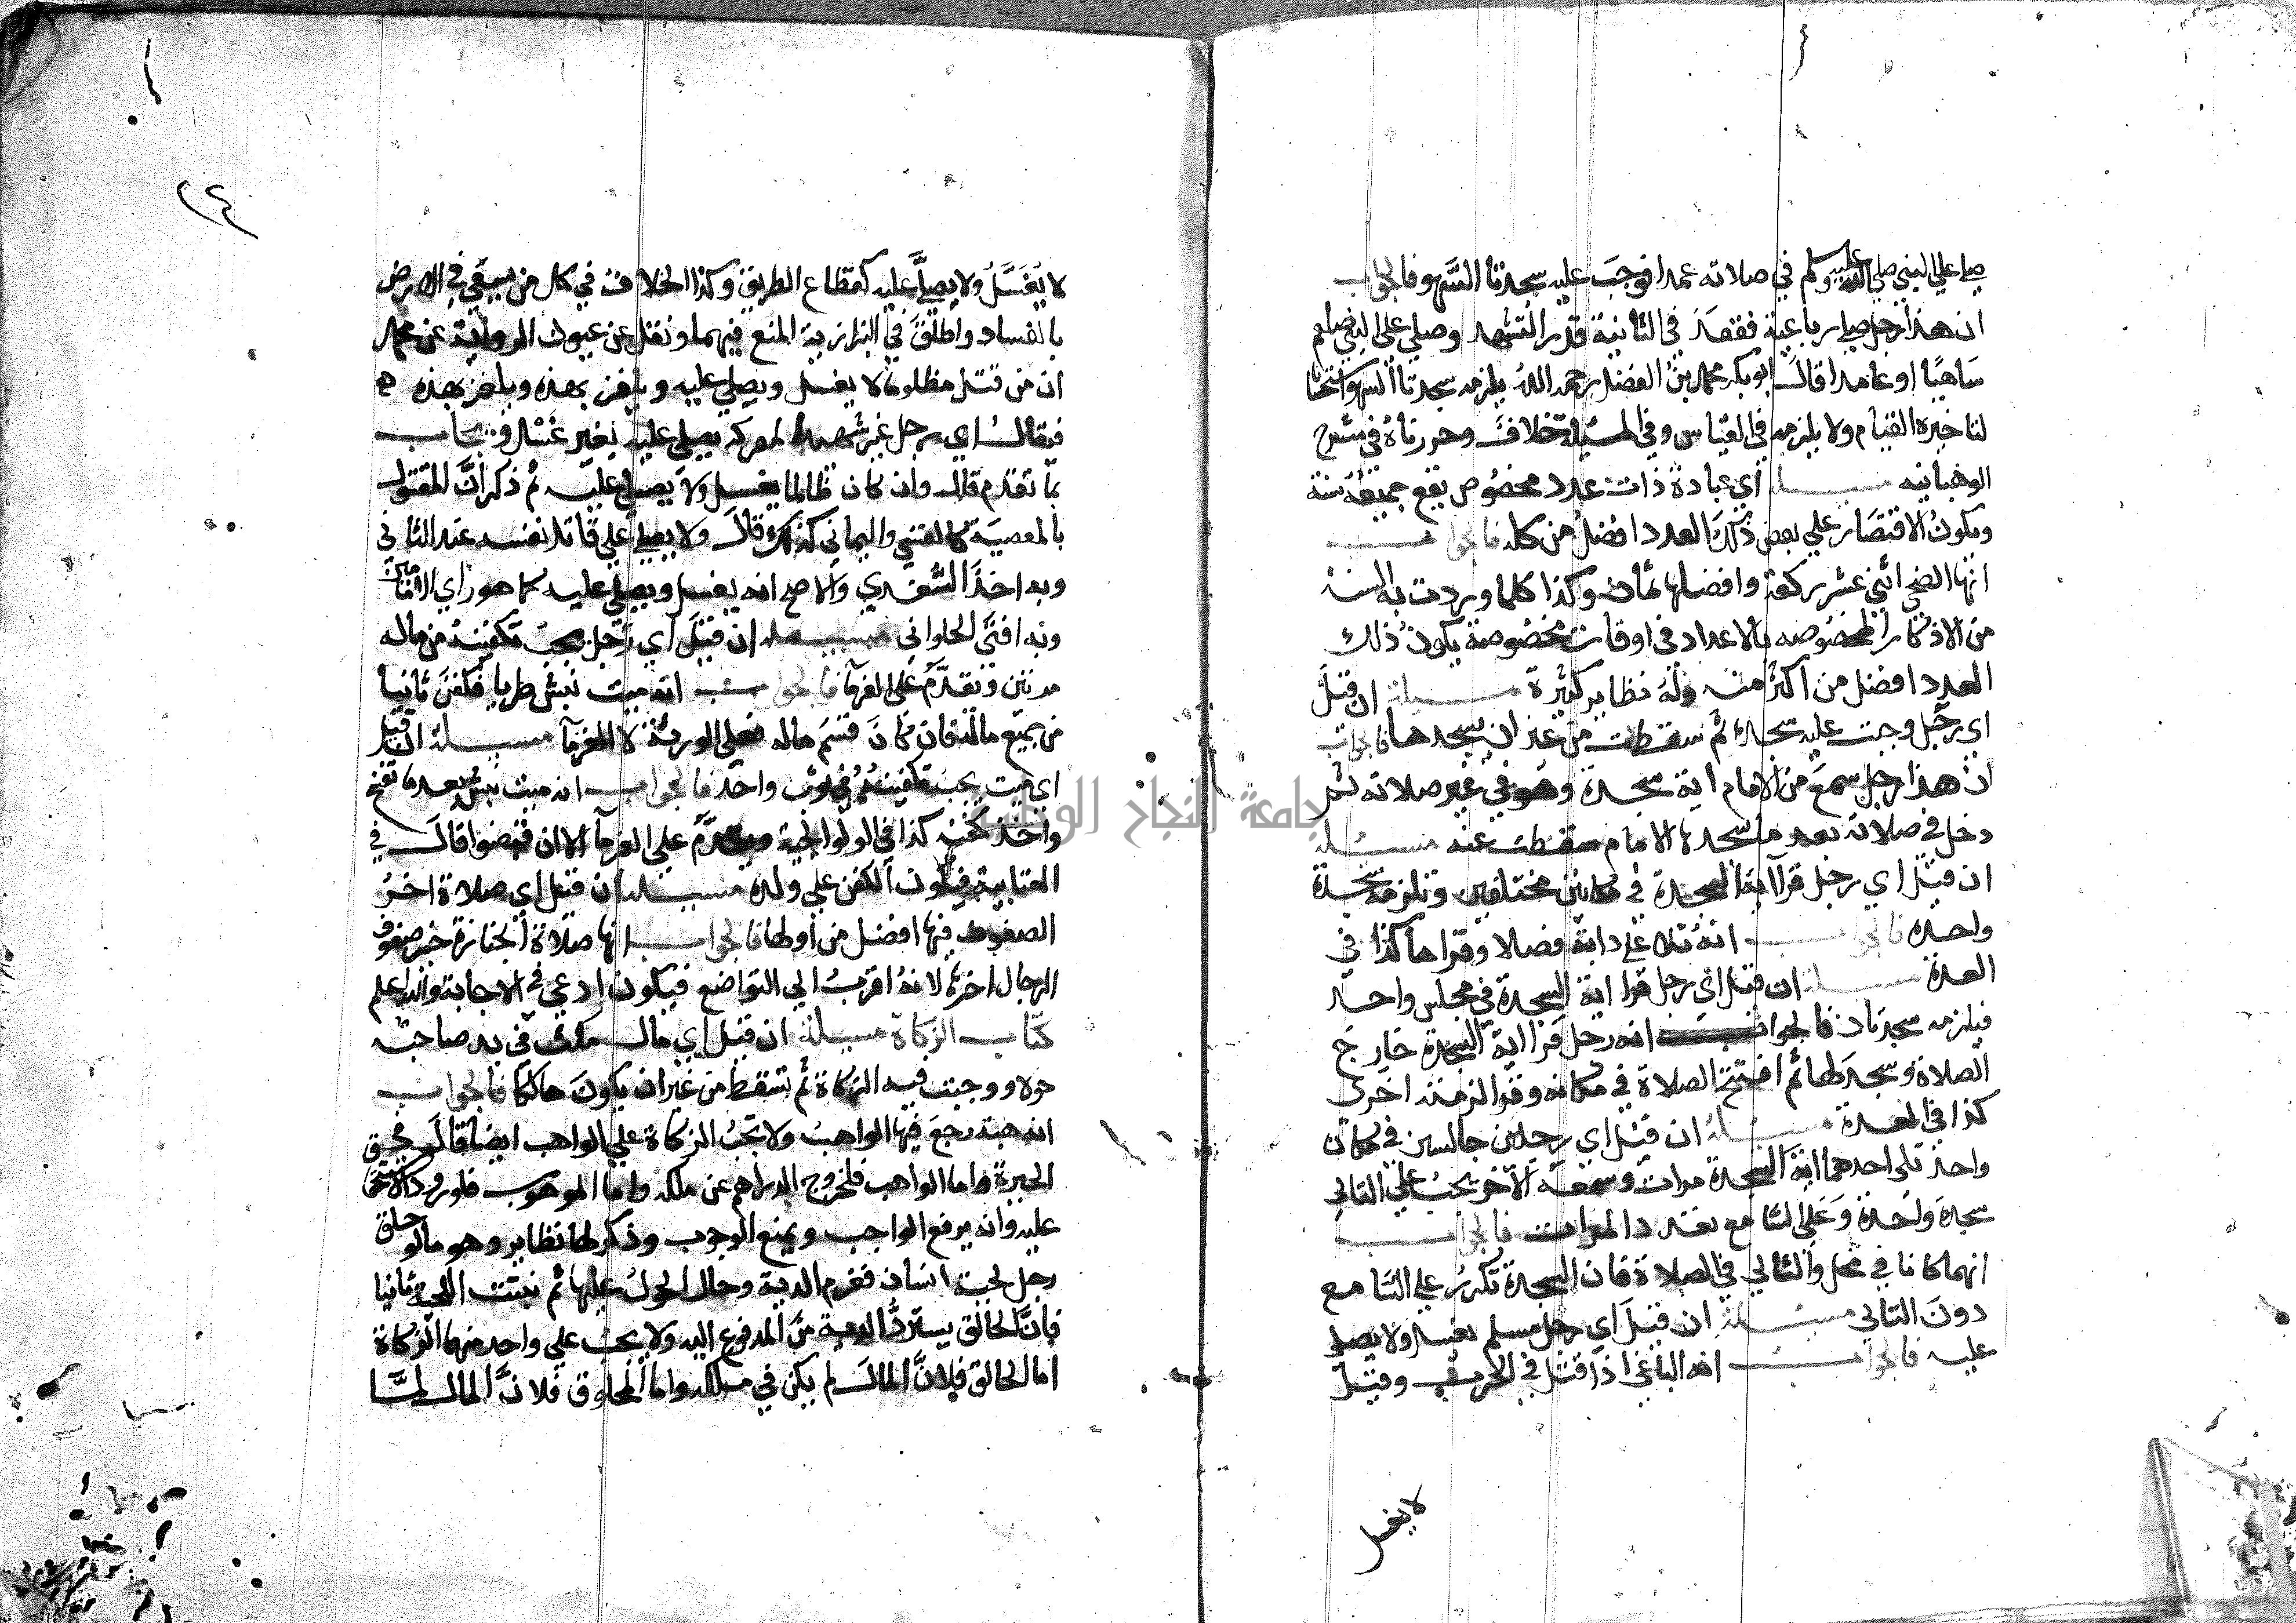 صلي علي النبي صلي الله عليه وسلم في صلاته عمدا فوجب عليه سجدتا السهو فالجواب
ان هذا رجل صلي رباعية فقعد في الثانية قدر التشهد وصلي علي النبي صلعم
ساهيا او عامدا قال ابو بكر محمد بن الفضل رحمه الله يلزمه سجدتا السهو استحسانا
لتاخيره القيام ولا يلزمه في القياس وفي المسئلة خلاف وحررناه في شرح
الوهبانيه مسئلة اي عبادة ذات عدد مخصوص يقع جميعه سنة
ويكون الاقتصار علي بعض ذلك العدد افضل من كله فالجواب
انها الضحي اثني عشر ركعة وافضلها ثمان وكذا كلما وردت به السنة
من الاذكار المخصوصه بالاعداد في اوقات مخصوصة يكون ذلك
العدد افضل من اكثر منه وله نظاير كثيرة مسئلة ان قيل
اي رجل وجبت عليه سجدة ثم سقطت من غير ان يسجدها فالجواب
ان هذا رجل سمع من الامام اية سجدة وهو في غير صلاته ثم
دخل في صلاته بعد ما سجدها الامام سقطت عنه مسئلة
ان قيل اي رجل قرا اية السجدة في مكانين مختلفين وتلزمه سجدة
واحدة فالجواب انه تلا علي دابة فصلا وقراها كذا في
العدة مسئلة ان قيل اي رجل قرا اية السجدة في مجلس واحد
فيلزمه سجدتان فالجواب انه رجل قرا اية السجدة خارج
الصلاة وسجد لها ثم افتتح الصلاة في مكانه وقرا لزمته اخري
كذا في العدة مسئلة ان قيل اي رجلين جالسين في مكان
واحد تلي احدهما اية السجدة مرات وسمعه الاخر يجب علي التالي
سجدة واحدة وعلي السامع بعدد المرات فالجواب
انهما كانا في محل والتالي في الصلاة فان السجدة تكرر علي السامع
دون التالي مسئلة ان قيل اي رجل مسلم يغسل ولا يصلي
عليه فالجواب انه الباغي اذا قتل في الحرب وقيل
لا يغسل
٢٤
لا يغسل ولا يصلي عليه كقطاع الطريق وكذا الخلاف في كل من يسعي في الارض
بالفساد واطلق في البزازية المنع فيهما ونقل عن عيون الرواية عن محمد
ان من قتل مظلوما لا يغسل ويصلي عليه
فيقال اي رجل غير شهيد المعركه يصلي عليه بغير غسل فيجاب
بما تقدم قال وان كان ظالما يغسل ولا يصلي عليه ثم ذكر ان المقتول
بالمعصية كالقيسي واليماني كذلك قال ولا يصلي علي قاتل نفسه عند الثاني
وبه اخذ السغدي والاصح انه يغسل ويصلي عليه كما هو راي الامامين
وبه افتي الحلواني مسئلة ان قيل اي رجل يجب تكفينه من ماله
مرتين ويقدم علي الغرما فالجواب انه ميت نبش طريا فكفن ثانيا
من جميع ماله فان كان قسم ماله فعلي الورثة لا الغرما مسئلة ان قيل
اي ميت يجب تكفينه في ثوب واحد فالجواب انه ميت نبش بعد ما تفسخ
واخذ كفنه كذا في الولوالجية ويقدم علي الغرما الا ان قبضوا قال في
العتابية فيكون الكفن علي ولده مسئلة ان قيل اي صلاة اخر
الصفوف فيها افضل من اولها فالجواب انها صلاة الجنازة خير صفوف
الرجال اخرها لانه اقرب الي التواضع فيكون ادعي في الاجابة والله اعلم
كتاب الزكاة مسئلة ان قيل اي مال ملك في يد صاحبه
حولا ووجبت فيه الزكاة ثم تسقط من غير ان يكون هالكا فالجواب
انه هبة رجع فيها الواهب ولا تجب الزكاة علي الواهب ايضا قال في
الحيرة واما الواهب فلخروج الدراهم عن ملكه واما الموهوب
عليه وانه يرفع الواجب ويمنع الوجوب وذكر لها نظاير وهو ما لو حلق
رجل لحية انسان فغرم الدية وحال الحول عليها ثم نبتت اللحية ثانيا
فان الحالق يسترد الدية من المدفوع اليه ولا يجب علي واحد منهما الزكاة
اما الحالق فلان المال لم يكن في ملكه واما المحلوق فلان المال لما
جامعة النجاح الوطنية